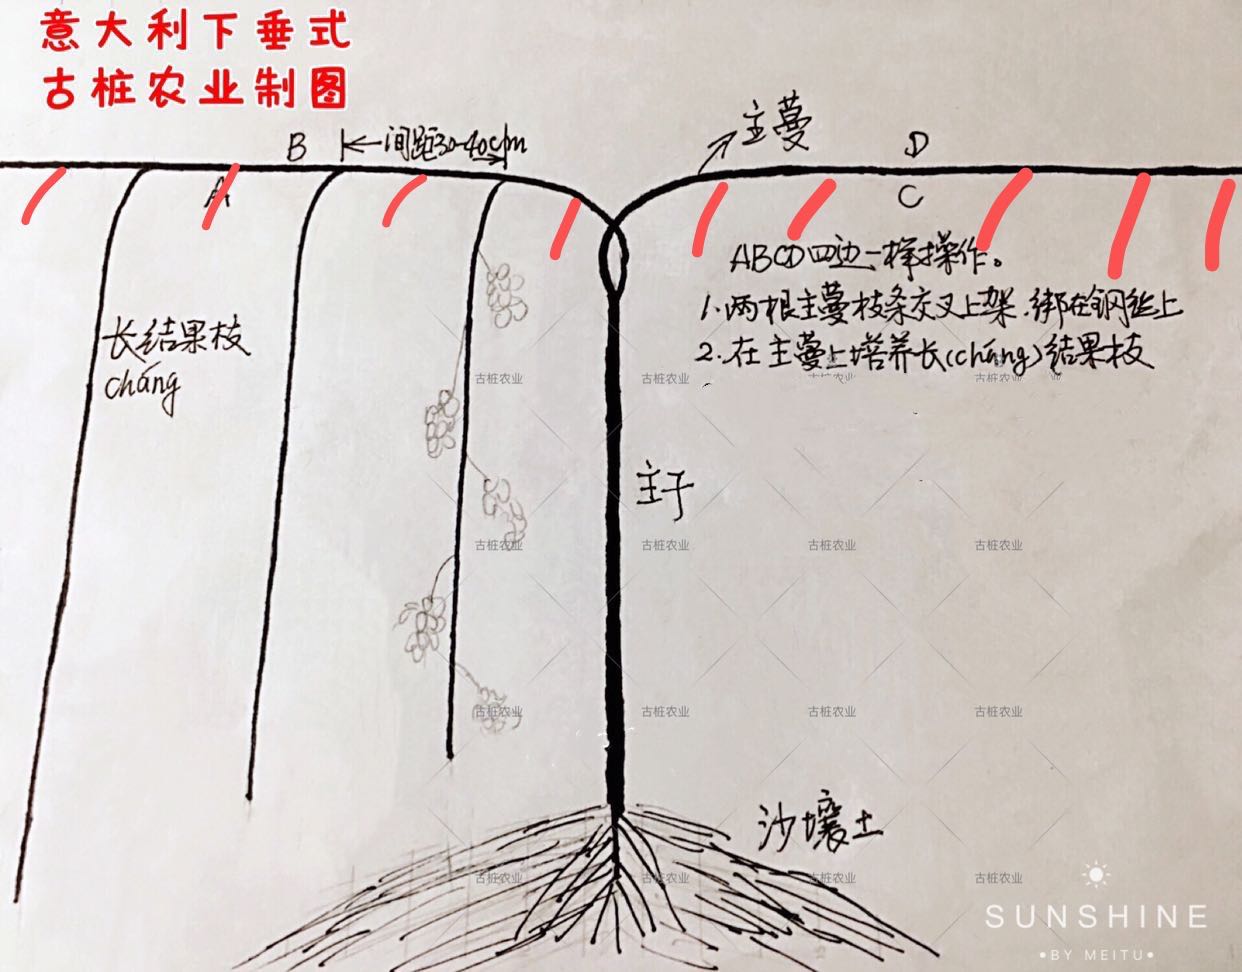 意大利下垂式
古桩农业制图
B
间距30-40cm
主蔓
D
A
C
ABCD四边一样操作。
1.两根主蔓枝条交叉上架.绑在钢丝上
2.在主蔓上培养长(cháng)结果枝
长结果枝
cháng
古桩农业 古桩农业 古桩农业 古桩农业
主干
古桩农业 古桩农业 古桩农业 古桩农业
古桩农业 古桩农业 古桩农业 古桩农业
沙壤土
古桩农业 古桩农业 古桩农业 古桩农业
SUNSHINE
•BY MEITU•